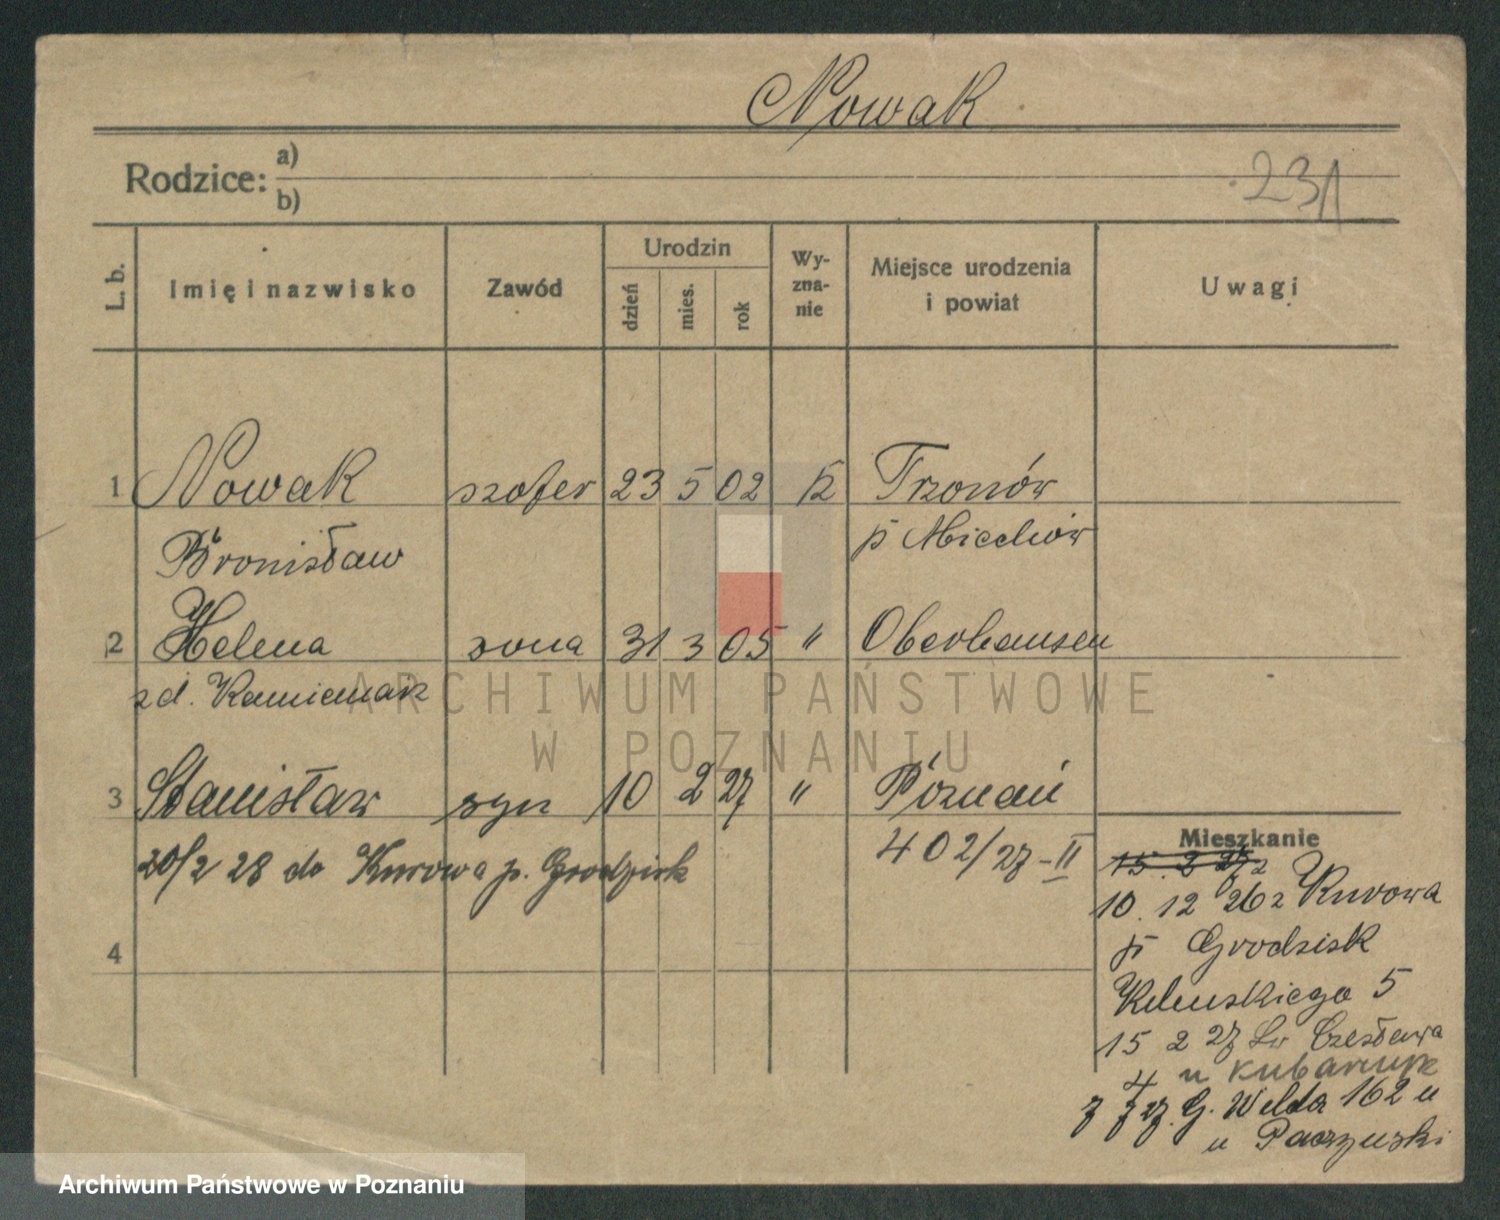 Nowak
Rodzice: a)
b)
231
L. b. Imię i nazwisko Zawód Urodzin dzień mies. rok Wy-zna-nie Miejsce urodzenia i powiat Uwagi
1 Nowak szofer 23 5 02 K Trzonów
Bronisław p Miechów
2 Helena żona 31 3 05 " Oberhausen
zd. Kamieniarz
ARCHIWUM PAŃSTWOWE
W POZNANIU
3 Stanisław syn 10 2 27 " Poznań
20/2 28 do Kurowa p. Grodzisk 402/27-II
4
Mieszkanie
15. 2 27 z
10. 12 26 z Kurowa
p Grodzisk
5
15 2 27 Św Czesława
4 u
7 7 27. G. Wilda 162 u
u Paczyński
Archiwum Państwowe w Poznaniu